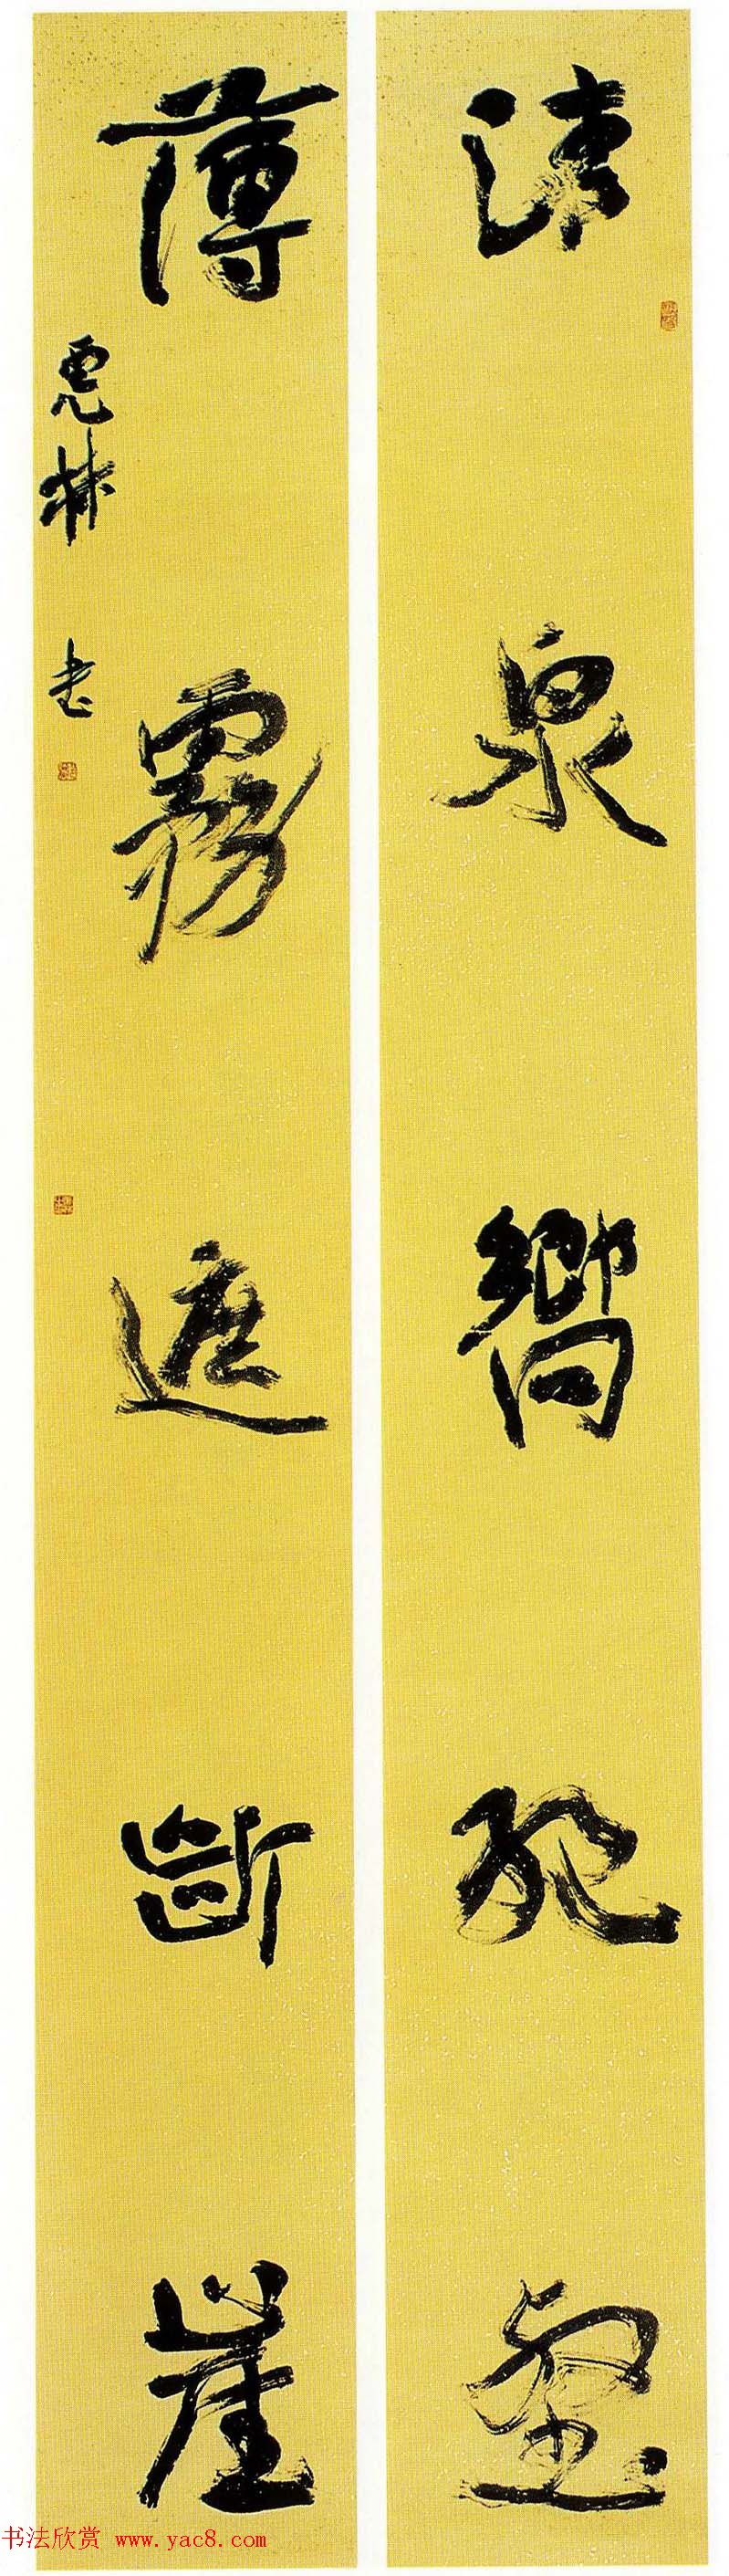 清泉嚮絕壑
薄霧遮斷崖
書
书法欣赏 www.yac8.com